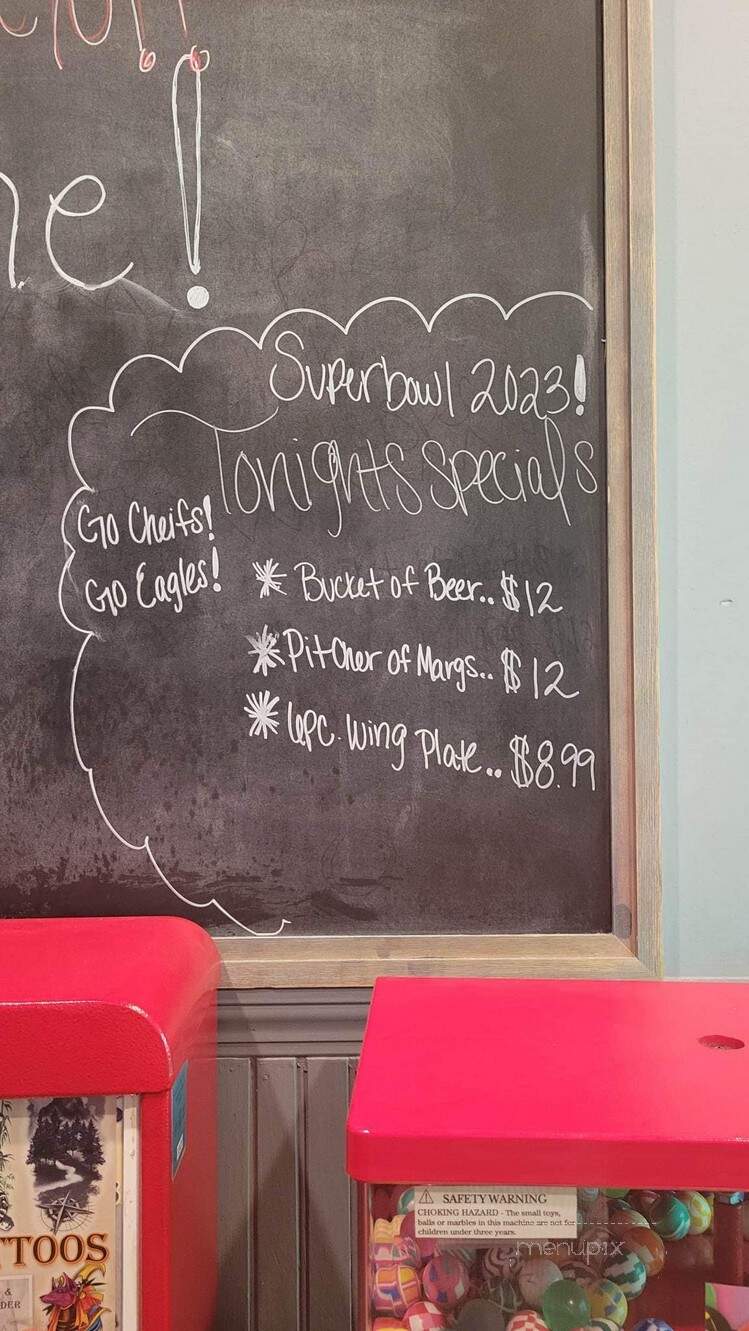 Superbowl 2023!
Tonights Specials
Go Cheifs!
Go Eagles!
* Bucket of Beer.. $12
* Pitcher of Margs.. $12
* 6pc. Wing Plate.. $8.99
SAFETY WARNING
CHOKING HAZARD - The small toys,
balls or marbles in this machine are not for
children under three years.
menupix